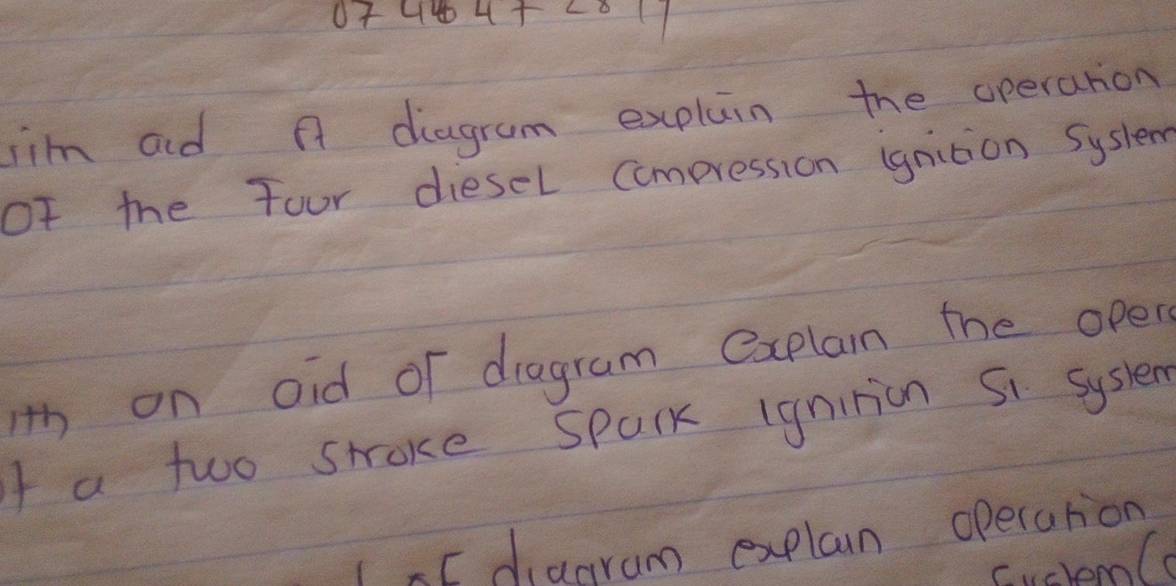 aid A diagram explain the operation
OF the Four diesel compression ignition System
on aid of diagram explain the
a two stroke spark ignition SI. system
of diagram explain operation